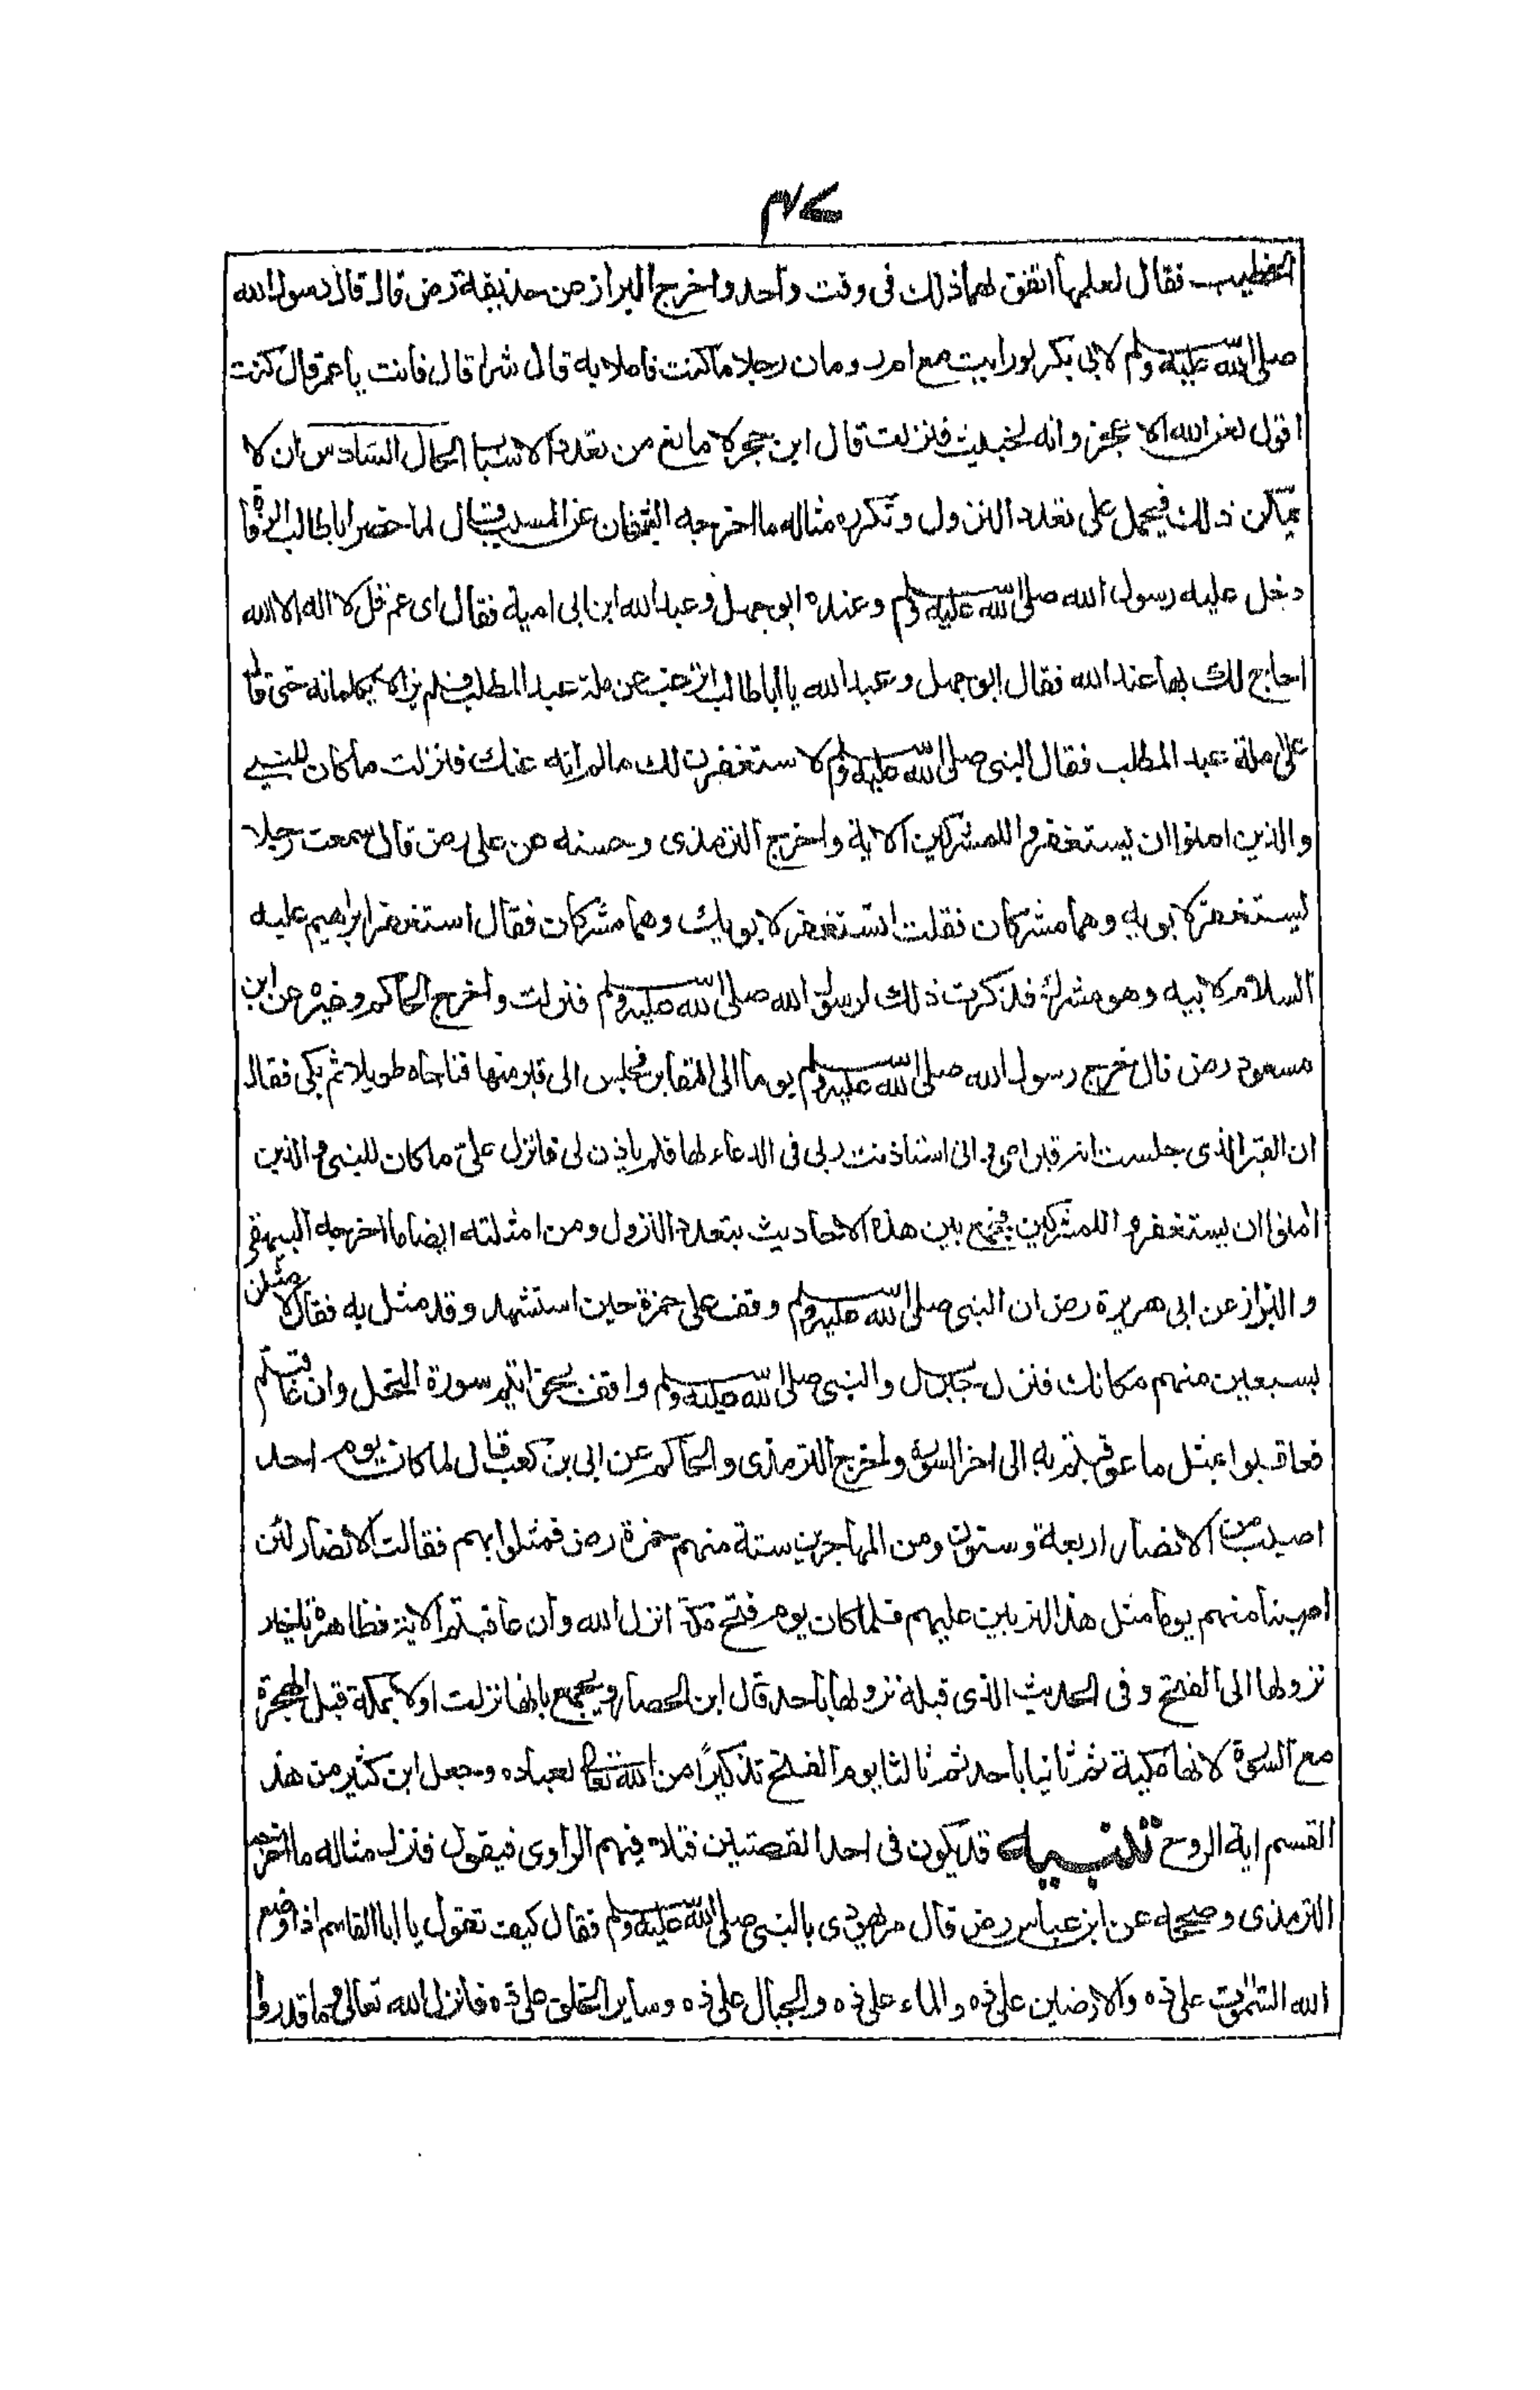 ٤٧
الخطيب فقال لعلهما اتفق لهما ذلك فى وقت واحد واخرج البزاز عن حذيفة رض قال قال رسول الله
صلى الله عليه وسلم لابى بكر لو رايت مع ام رومان رجلا ما كنت فاعلا به قال شرا قال فانت يا عمر قال كنت
اقول لعن الله الاعجز وانه لخبيث فنزلت قال ابن حجر لا مانع من تعدد الاسباب الحال السادس ان لا
يمكن ذلك فيحمل على تعدد النزول وتكرره مثاله ما اخرجه الشيخان عن المسيب قال لما حضر ابا طالب الوفاة
دخل عليه رسول الله صلى الله عليه وسلم وعنده ابو جهل وعبد الله ابن ابى امية فقال اى عم قل لا اله الا الله
احاج لك بها عند الله فقال ابو جهل وعبد الله يا ابا طالب اترغب عن ملة عبد المطلب فلم يزالا يكلمانه حتى قال
على ملة عبد المطلب فقال النبى صلى الله عليه وسلم لاستغفرن لك مالم انه عنك فنزلت ما كان للنبى
والذين امنوا ان يستغفروا للمشركين الاية واخرج الترمذى وحسنه عن على رض قال سمعت رجلا
يستغفر لابويه وهما مشركان فقلت اتستغفر لابويك وهما مشركان فقال استغفر ابراهيم عليه
السلام لابيه وهو مشرك فذكرت ذلك لرسول الله صلى الله عليه وسلم فنزلت واخرج الحاكم وغيره عن ابن
مسعود رض قال خرج رسول الله صلى الله عليه وسلم يوما الى المقابر فجلس الى قبر منها فناجاه طويلا ثم بكى فقال
ان القبر الذى جلست عنده قبر امى وانى استاذنت ربى فى الدعاء لها فلم ياذن لى فانزل على ما كان للنبى والذين
امنوا ان يستغفروا للمشركين فجمع بين هذه الاحاديث بتعدد النزول ومن امثلته ايضا ما اخرجه البيهقى
والبزاز عن ابى هريرة رض ان النبى صلى الله عليه وسلم وقف على حمزة حين استشهد وقد مثل به فقال لامثلن
بسبعين منهم مكانك فنزل جبريل والنبى صلى الله عليه وسلم واقف بخواتيم سورة النحل وان عاقبتم
فعاقبوا بمثل ما عوقبتم به الى اخر السورة واخرج الترمذى والحاكم عن ابى بن كعب قال لما كان يوم احد
اصيب من الانصار اربعة وستون ومن المهاجرين ستة منهم حمزة رض فمثلوا بهم فقالت الانصار لئن
اصبنا منهم يوما مثل هذا لنربين عليهم فلما كان يوم فتح مكة انزل الله وان عاقبتم الاية فظاهره تاخير
نزولها الى الفتح وفى الحديث الذى قبله نزولها باحد قال ابن الحصار ويجمع بانها نزلت اولا بمكة قبل الهجرة
مع السورة لانها مكية ثم ثانيا باحد ثم ثالثا يوم الفتح تذكيرًا من الله تعالى لعباده وجعل ابن كثير من هذ
القسم اية الروح تنبيه قد يكون فى احد القصتين فتلا فيهم الراوى فيقول فنزل مثاله ما اخرجه
الترمذى وصححه عن ابن عباس رض قال مر يهودى بالنبى صلى الله عليه وسلم فقال كيف تقول يا ابا القاسم اذا وضع
الله السموات على ذه والارضين على ذه والماء على ذه والجبال على ذه وساير الخلق على ذه فانزل الله تعالى وما قدروا